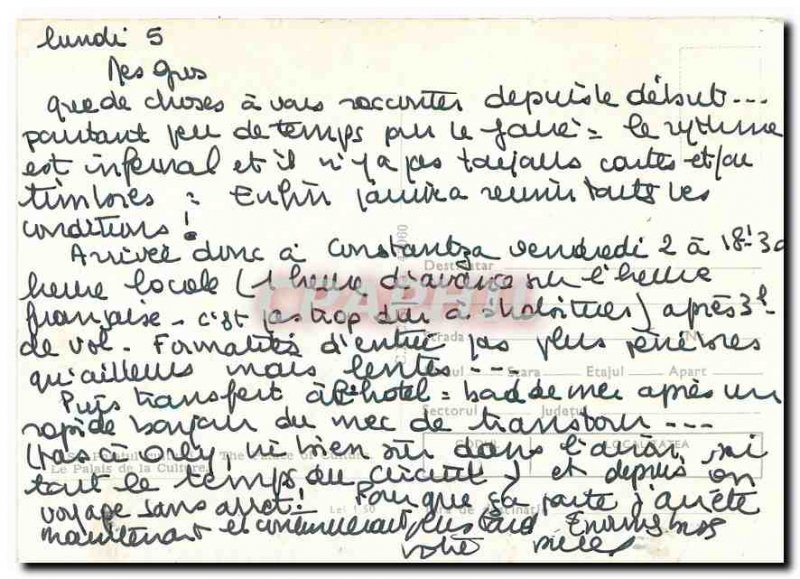 lundi 5
Mes Gros
que de choses à vous raconter depuis le début ---
pourtant peu de temps pour le faire = le rythme
est infernal et il n'y a pas toujours cartes et/ou
timbres = Enfin réunir toutes les
conditions !
Arrivée donc à Constantza vendredi 2 à 18h30
heure locale (1 heure d'avance sur l'heure
française - c'est pas trop dur à s'habituer) après 3h
de vol - Formalités d'entrée pas plus
qu'ailleurs mais lentes ---
Puis transfert à l'hotel = bain de mer après un
rapide bonjour du mec de transtour ---
(pas à Orly, ni bien sûr dans l'avion, ni
tout le temps du circuit) et depuis on
voyage sans arrêt ! Pour que ça parte j'arrête
maintenant et continuerai plus tard Enormes bises
votre
Destinatar
Strada
Nr.
Scara Etajul Apart
Sectorul Județul
CODUL LOCALITATEA
The Palace of Culture
Le Palais de la Culture
Lei 1,50
CPAPHIL